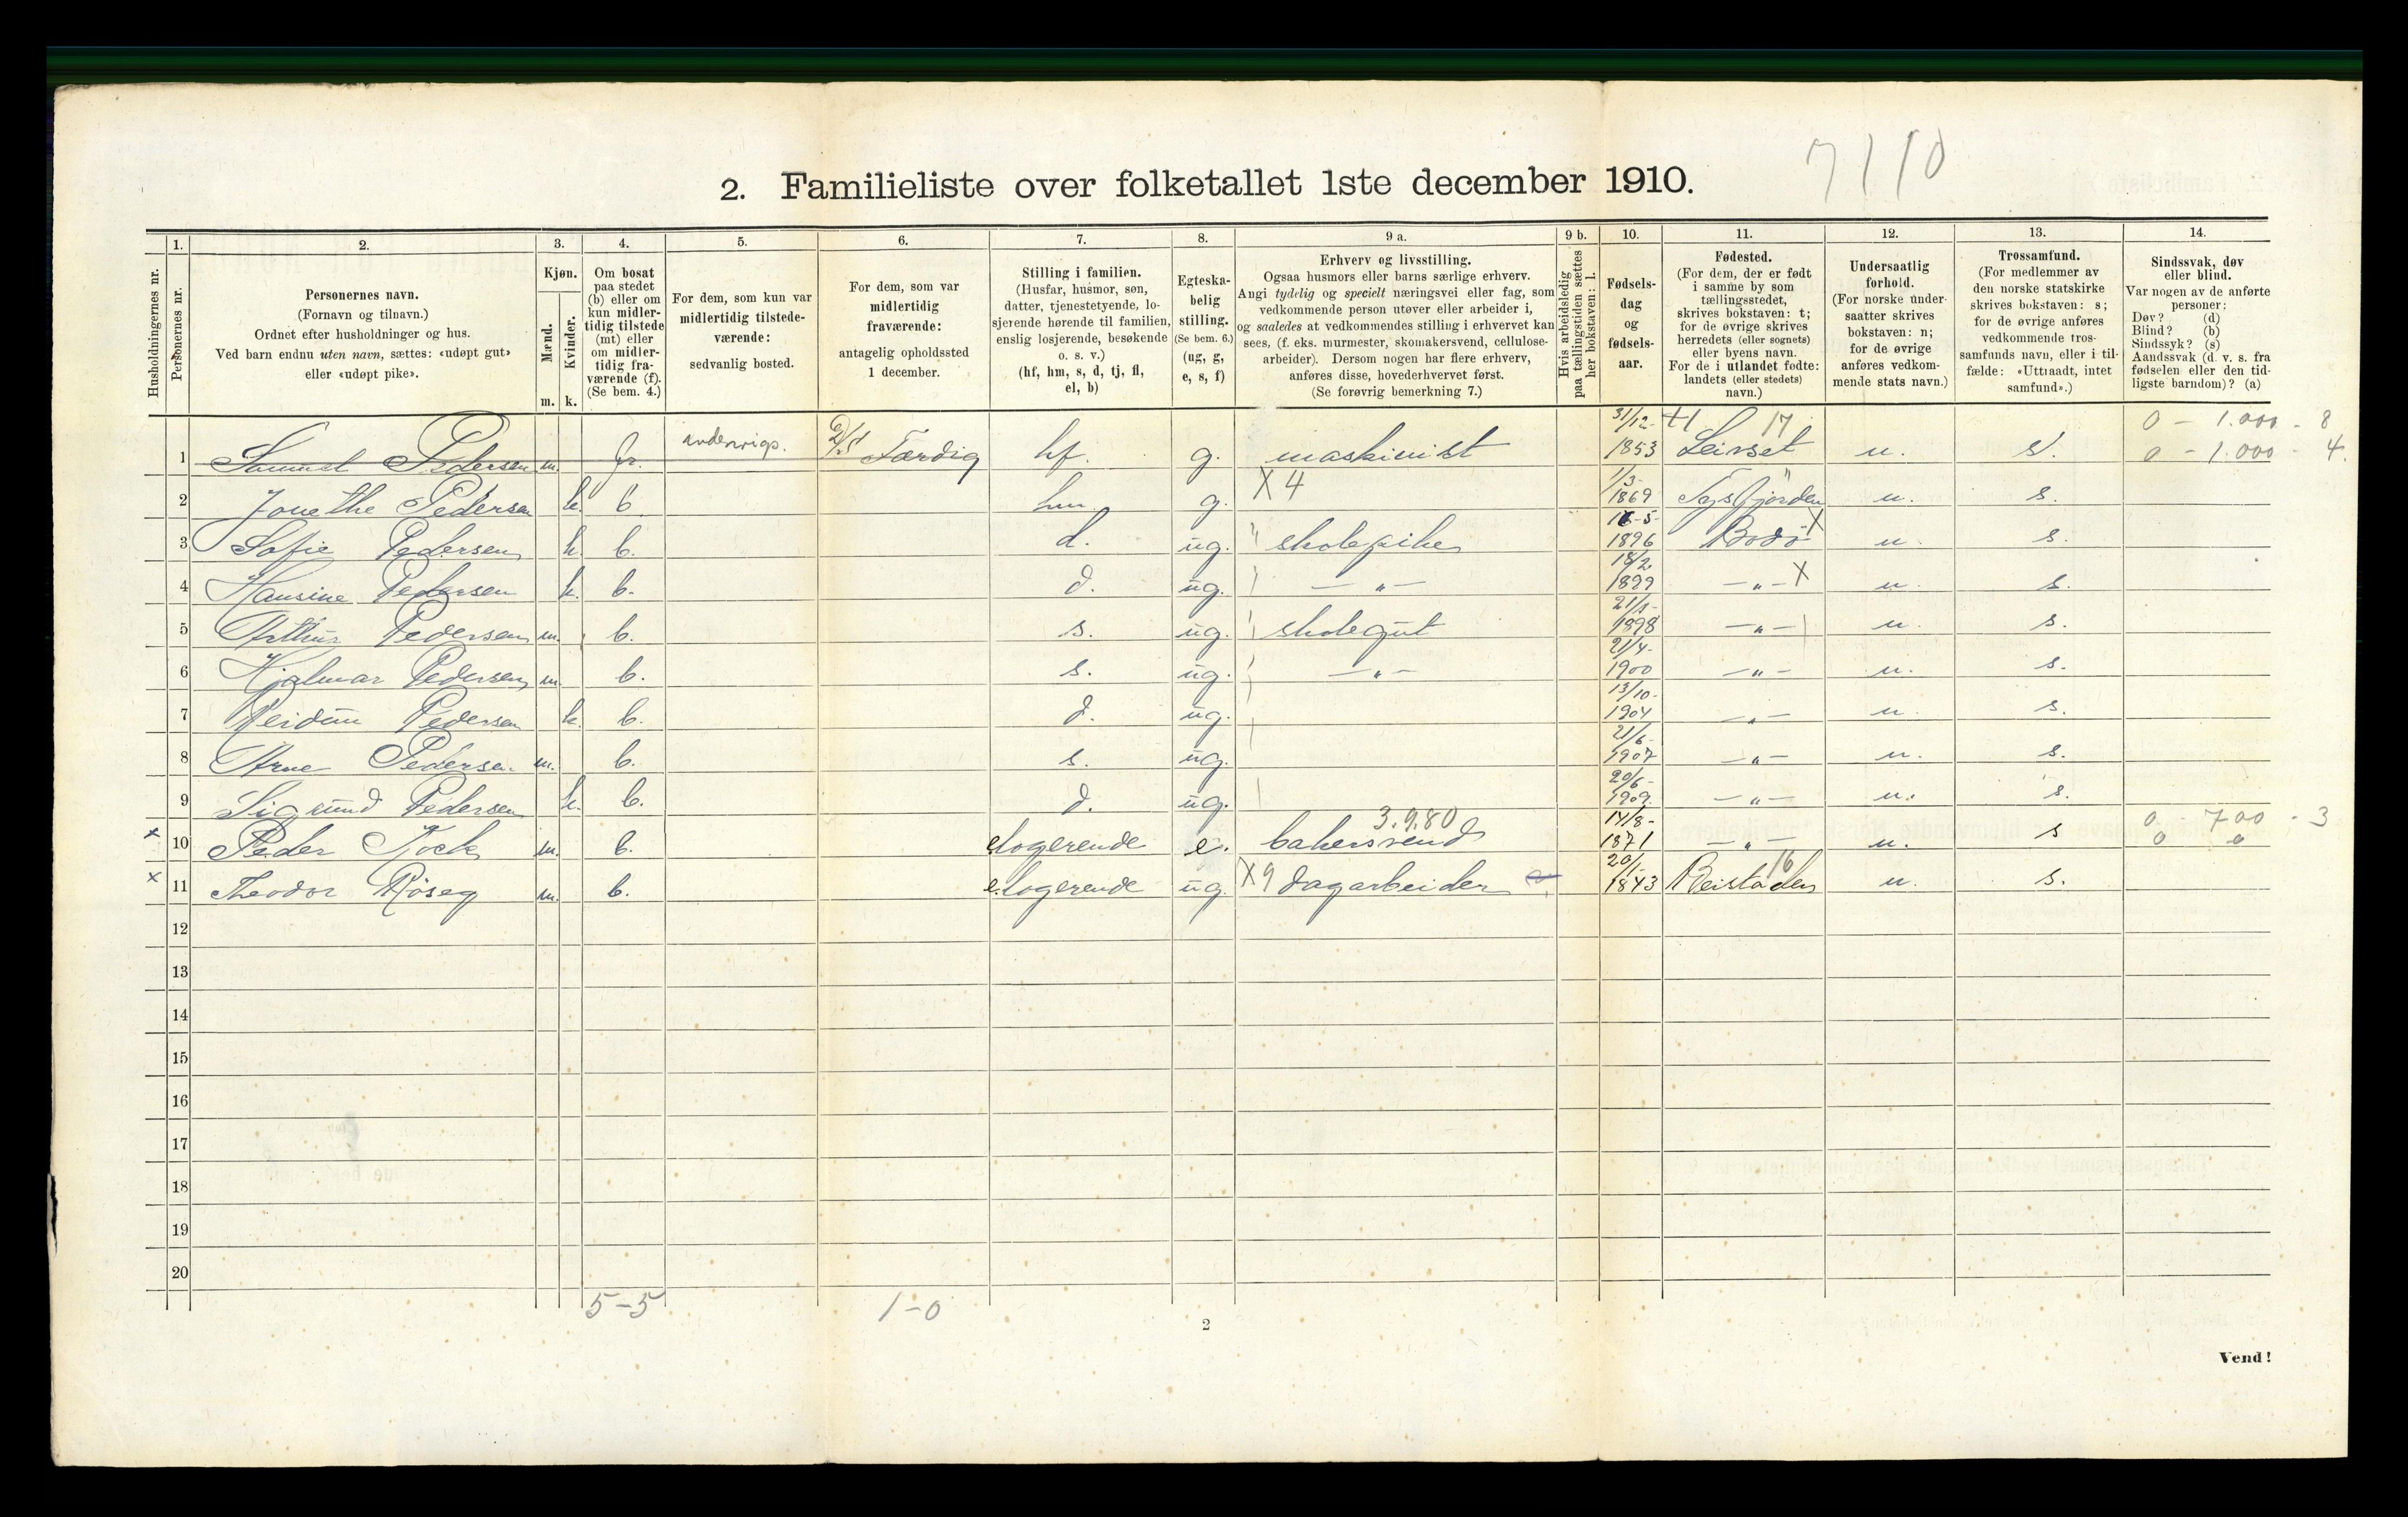 7110
2. Familieliste over folketallet 1ste december 1910.
Husholdningernes nr.
1. Personernes nr.
2. Personernes navn.
(Fornavn og tilnavn.)
Ordnet efter husholdninger og hus.
Ved barn endnu uten navn, sættes: «udøpt gut»
eller «udøpt pike».
3. Kjøn.
Mænd. m.
Kvinder. k.
4. Om bosat
paa stedet
(b) eller om
kun midler-
tidig tilstede
(mt) eller
om midler-
tidig fra-
værende (f).
(Se bem. 4.)
5. For dem, som kun var
midlertidig tilstede-
værende:
sedvanlig bosted.
6. For dem, som var
midlertidig
fraværende:
antagelig opholdssted
1 december.
7. Stilling i familien.
(Husfar, husmor, søn,
datter, tjenestetyende, lo-
sjerende hørende til familien,
enslig losjerende, besøkende
o. s. v.)
(hf, hm, s, d, tj, fl,
el, b)
8. Egteska-
belig
stilling.
(Se bem. 6.)
(ug, g,
e, s, f)
9 a. Erhverv og livsstilling.
Ogsaa husmors eller barns særlige erhverv.
Angi tydelig og specielt næringsvei eller fag, som
vedkommende person utøver eller arbeider i,
og saaledes at vedkommendes stilling i erhvervet kan
sees, (f. eks. murmester, skomakersvend, cellulose-
arbeider). Dersom nogen har flere erhverv,
anføres disse, hovederhvervet først.
(Se forøvrig bemerkning 7.)
9 b. Hvis arbeidsledig
paa tællingstiden sættes
her bokstaven: l.
10. Fødsels-
dag
og
fødsels-
aar.
11. Fødested.
(For dem, der er født
i samme by som
tællingsstedet,
skrives bokstaven: t;
for de øvrige skrives
herredets (eller sognets)
eller byens navn.
For de i utlandet fødte:
landets (eller stedets)
navn.)
12. Undersaatlig
forhold.
(For norske under-
saatter skrives
bokstaven: n;
for de øvrige
anføres vedkom-
mende stats navn.)
13. Trossamfund.
(For medlemmer av
den norske statskirke
skrives bokstaven: s;
for de øvrige anføres
vedkommende tros-
samfunds navn, eller i til-
fælde: «Uttraadt, intet
samfund».)
14. Sindssvak, døv
eller blind.
Var nogen av de anførte
personer:
Døv? (d)
Blind? (b)
Sindssyk? (s)
Aandssvak (d. v. s. fra
fødselen eller den tid-
ligste barndom)? (a)
31/12- 17 0 - 1.000 - 8
1 Samuel Pedersen m. fr. undervigs. Færdig hf. g. maskinist 1853 Leivset n. s. 0 - 1.000 - 4.
2 Jonethe Pedersen k. b. hm. g. X 4 1/3- 1869 n. s.
3 Sofie Pedersen k. b. d. ug. skolepike 5- 1896 Bodø X n. s.
4 Hansine Pedersen k. b. d. ug. -"- 18/2. 1899 -"- X n. s.
5 Arthur Pedersen m. b. s. ug. skolegut 21/1- 1898 -"- n. s.
6 Hjalmar Pedersen m. b. s. ug. -"- 21/4- 1900 -"- n. s.
7 Reidun Pedersen k. b. d. ug. 13/10- 1904 -"- n. s.
8 Arne Pedersen m. b. s. ug. 21/6- 1907 -"- n. s.
9 Sigrund Pedersen k. b. d. ug. 20/6- 1909. -"- n. s.
x 10 Peder m. b. elogerende e. bakersvend 3.9.80 14/8- 1871 -"- n. s 0 - 700 - 3
0 0
x 11 Theodor Röseg m. b. e.logerende ug. X9 dagarbeider 20/1- 1843 Beistaden 16 n. s.
12
13
14
15
16
17
18
19
20
5-5 1-0
2
Vend!